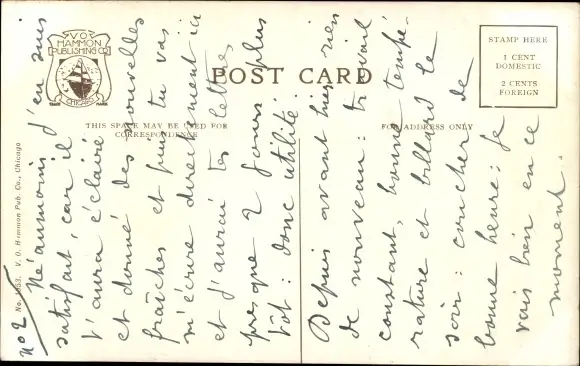 V.O.
HAMMON
PUBLISHING CO.
TRADE MARK
CHICAGO
POST CARD
THIS SPACE MAY BE USED FOR
CORRESPONDENCE
FOR ADDRESS ONLY
STAMP HERE
1 CENT
DOMESTIC
2 CENTS
FOREIGN
V. O. Hammon Pub. Co., Chicago
No 2
Néanmoins j'en suis
satisfait, car il
t'aura éclairé
et donné des nouvelles
fraîches et puis tu vas
m'écrire directement ici
et j'aurai tes lettres
presque 2 jours plus
tôt: donc utilité.
Depuis avant hier, rien
de nouveau: travail
constant, bonne tempé-
rature et billard le
soir: coucher de
bonne heure: je
vais bien en ce
moment.